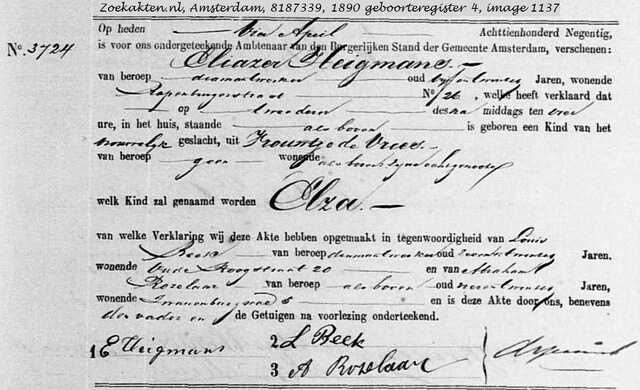 Zoekakten.nl, Amsterdam, 8187339, 1890 geboorteregister 4, image 1137
No. 3724
Op heden Vier April Achttienhonderd Negentig,
is voor ons ondergeteekende Ambtenaar van den Burgerlijken Stand der Gemeente Amsterdam, verschenen:
Eliazer Heigmans
van beroep diamantwerker oud Jaren, wonende
Rapenburgerstraat No. 26, welke heeft verklaard dat
op tweeden dezer des na middags ten vier
ure, in het huis, staande als boven is geboren een Kind van het
vrouwelijk geslacht, uit Vrouwtje de Vries
van beroep geen wonende als boven zijne echtgenoote
welk Kind zal genaamd worden Elza.
van welke Verklaring wij deze Akte hebben opgemaakt in tegenwoordigheid van Louis
Beek van beroep diamantwerker oud Jaren.
wonende Oude Hoogstraat 20 en van Abraham
Roselaar van beroep als boven oud Jaren,
wonende 8 en is deze Akte door ons, benevens
den vader en de Getuigen na voorlezing onderteekend.
1 E Heigmans 2 L Beek
3 A Roselaar